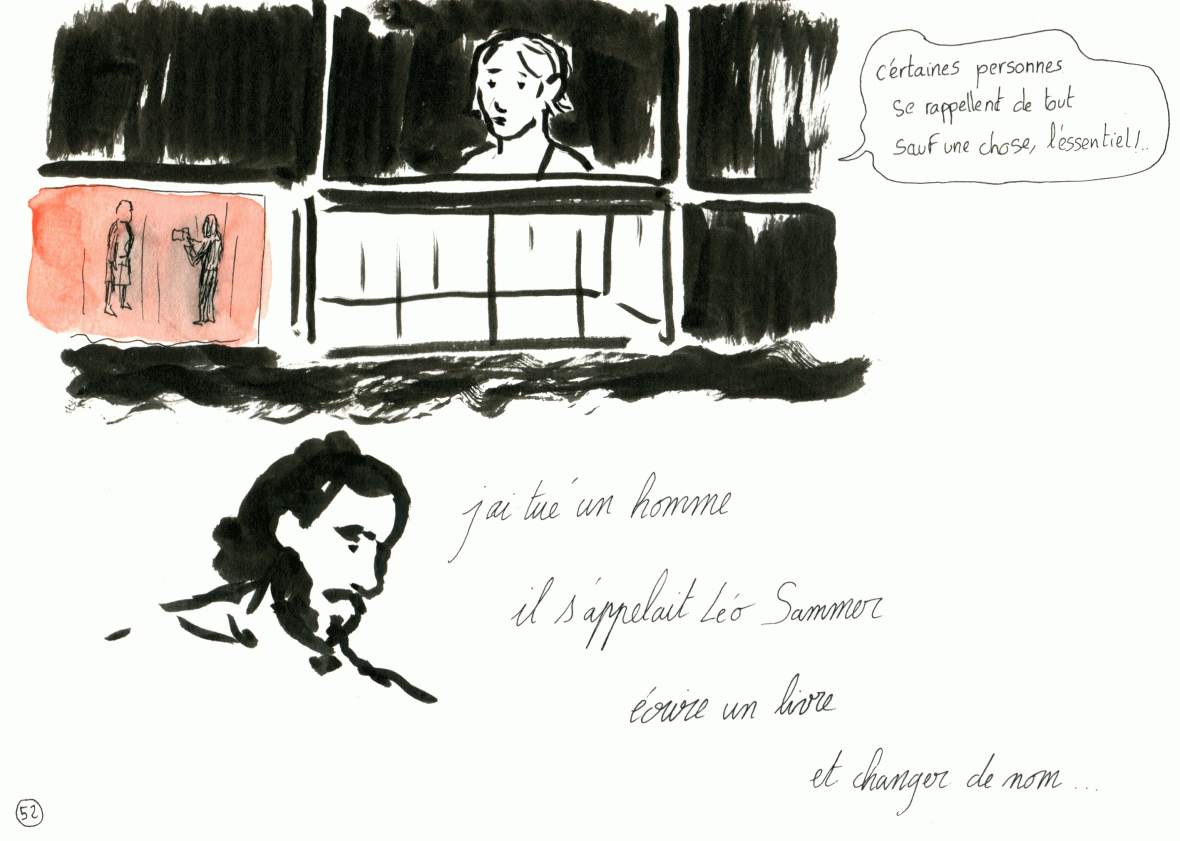 certaines personnes
se rappellent de tout
sauf une chose, l'essentiel!..
j'ai tué un homme
il s'appelait Léo Sammer
écrire un livre
et changer de nom...
52